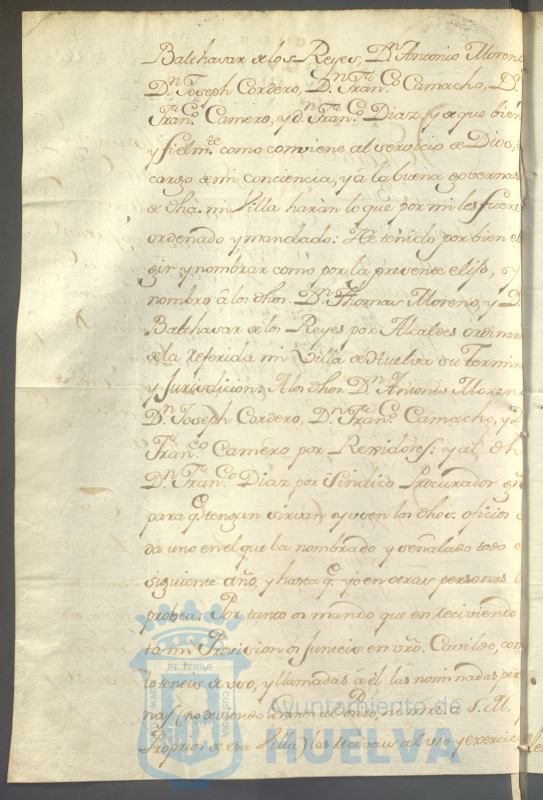 Balthasar de los Reyes, Dn. Antonio Moreno
Dn. Joseph Cordero, Dn. Franco. Camacho, D.
Franco. Camero, y dn. Franco. Diaz, y de que bien
y fielmte. como conviene al servicio de Dios,
cargo de mi conciencia, y a la buena governas
de dha. mi Villa haràn lo que por mi les fuere
ordenado y mandado: He tenido por bien el
gir y nombrar como por la presente elijo, y
nombro â los dhos. Dn. Thomas Moreno, y D.
Balthasar de los Reyes por Alcaldes ordinar
de la referida mi Villa de Huelva su Termin
y Jurisdicion; A los dhos. Dn. Antonio Moren
Dn. Joseph Cordero, Dn. Franco. Camacho, y d
Franco. Camero por Rexidores: y al dh
Dn. Franco. Diaz por Sindico Procurador gñ
para q. tengan sirvan y usen los dhos. oficios c
da uno en el que va nombrado y señalado todo e
siguiente año, y hasta q. yo en otras personas l
probea. Por tanto os mando que en reciviendo
ta mi Provision os junteis en vrõ. Cavildo, con
lo teneis de uso, y llamadas à èl las nominadas per
nas (no deviendo a S. M.
Proprios de esa Villa) las recivais al uso y exercici
ET TERRAE
Ayuntamiento de
HUELVA